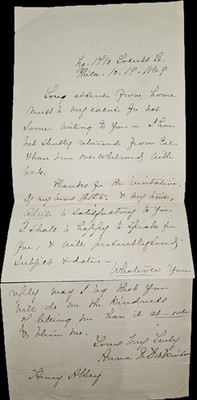 No. 1710 Locust St.
Phila. 10.19.1869
Long absence from home
must be my excuse for not
sooner writing to you — I have
but shortly returned from Cal.
& have been overwhelmed with
work.
Thanks for the invitation.
If my terms $125. & my time,
April is satisfactory to you
I shall be happy to speak for
you, & will
subject & date —
Whatever you
reply may I beg that you
will do me the kindness
of letting me have it at once
& oblige me.
Yours very truly
Anna E. Dickinson
Henry Abbey